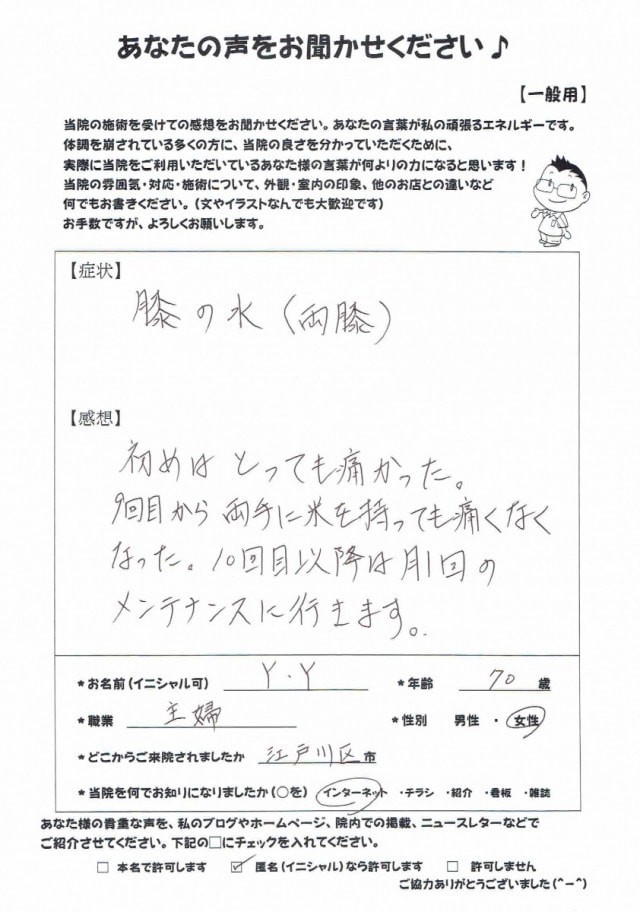 あなたの声をお聞かせください♪
【一般用】
当院の施術を受けての感想をお聞かせください。あなたの言葉が私の頑張るエネルギーです。
体調を崩されている多くの方に、当院の良さを分かっていただくために、
実際に当院をご利用いただいているあなた様の言葉が何よりの力になると思います！
当院の雰囲気・対応・施術について、外観・室内の印象、他のお店との違いなど
何でもお書きください。（文やイラストなんでも大歓迎です）
お手数ですが、よろしくお願いします。
【症状】
膝の水（両膝）
【感想】
初めは とっても痛かった。
9回目から 両手に米を持っても痛くなく
なった。10回目以降は月1回の
メンテナンスに行きます。
*お名前（イニシャル可） Y.Y *年齢 70 歳
*職業 主婦 *性別 男性 ・ 女性
*どこからご来院されましたか 江戸川区 市
*当院を何でお知りになりましたか（○を） インターネット ・チラシ ・紹介 ・看板 ・雑誌
あなた様の貴重な声を、私のブログやホームページ、院内での掲載、ニュースレターなどで
ご紹介させてください。下記の□にチェックを入れてください。
□ 本名で許可します ☑ 匿名（イニシャル）なら許可します □ 許可しません
ご協力ありがとうございました(^－^)